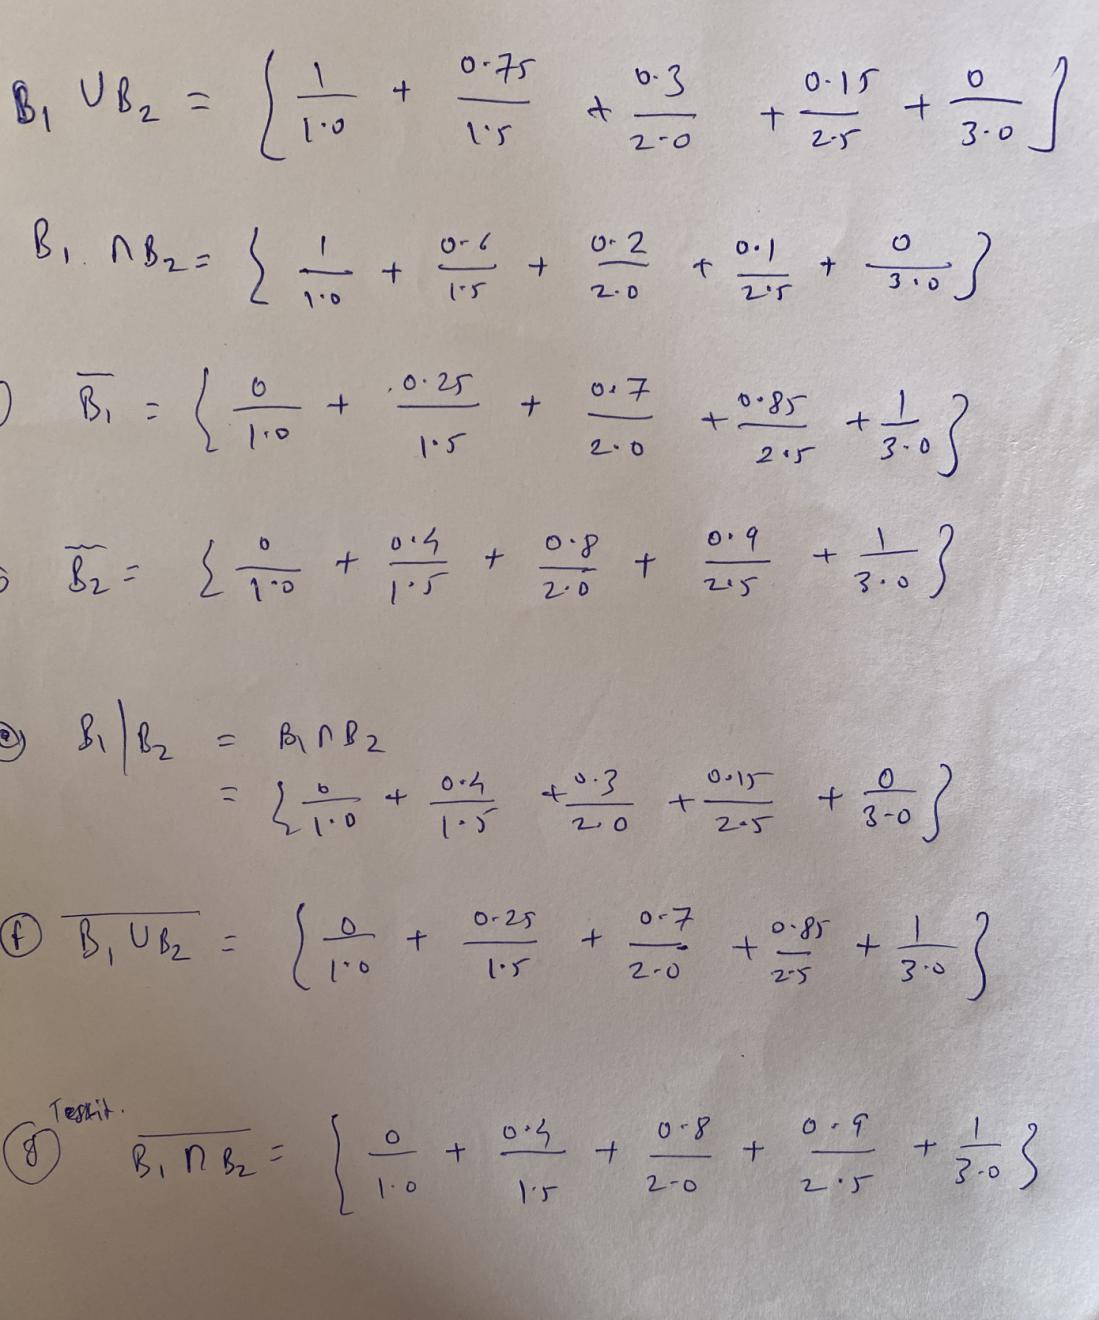 B₁ ∪ B₂ = { 1/1.0 + 0.75/1.5 + 0.3/2.0 + 0.15/2.5 + 0/3.0 }
B₁ ∩ B₂ = { 1/1.0 + 0.6/1.5 + 0.2/2.0 + 0.1/2.5 + 0/3.0 }
B̅₁ = { 0/1.0 + 0.25/1.5 + 0.7/2.0 + 0.85/2.5 + 1/3.0 }
B̅₂ = { 0/1.0 + 0.4/1.5 + 0.8/2.0 + 0.9/2.5 + 1/3.0 }
(e) B₁ | B₂ = B₁ ∩ B₂
= { 0/1.0 + 0.4/1.5 + 0.3/2.0 + 0.15/2.5 + 0/3.0 }
(f) \overline{B₁ ∪ B₂} = { 0/1.0 + 0.25/1.5 + 0.7/2.0 + 0.85/2.5 + 1/3.0 }
(g) \overline{B₁ ∩ B₂} = { 0/1.0 + 0.4/1.5 + 0.8/2.0 + 0.9/2.5 + 1/3.0 }